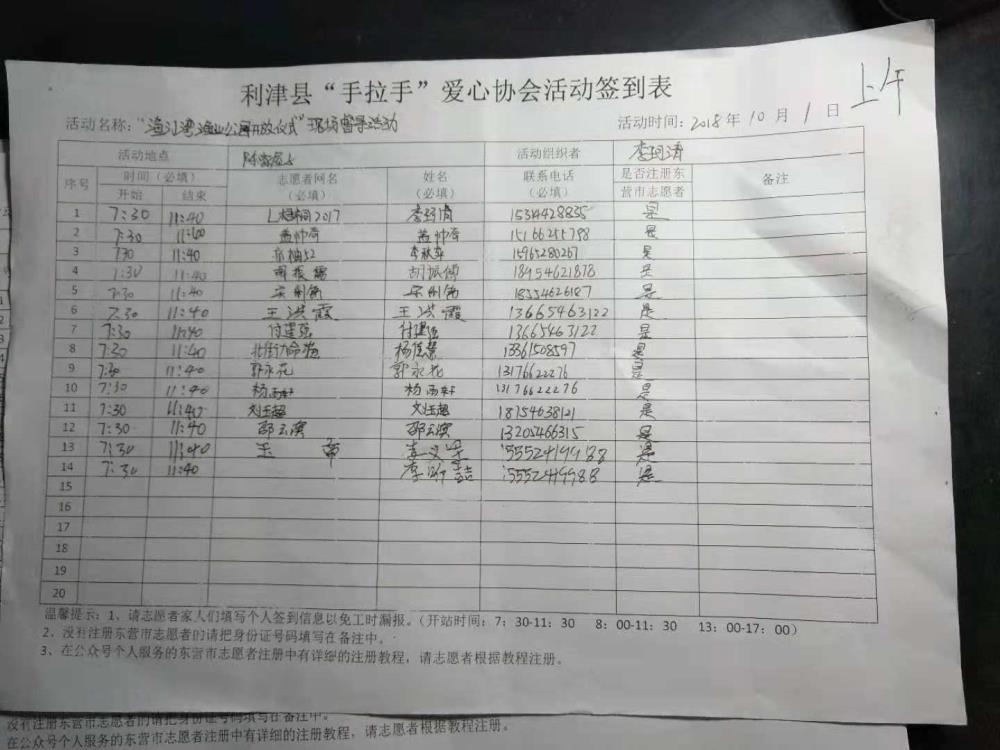 上午
利津县“手拉手”爱心协会活动签到表
活动名称： 开放仪式”现场督导活动 活动时间：2018年10月1日
活动地点 活动组织者 李珂清
序号 时间（必填） 志愿者网名（必填） 姓名（必填） 联系电话（必填） 是否注册东营市志愿者 备注
开始 结束
1 7:30 11:40 2017 李珂清 15314428835 是
2 7:30 11:40 孟帅奇 孟帅奇 是
3 7:30 11:40 15965280267 是
4 7:30 11:40 胡振德 18954621878 是
5 7:30 11:40 18554626187 是
6 7:30 11:40 王洪霞 王洪霞 13665463122 是
7 7:30 11:40 付建强 付建强 13665463122 是
8 7:30 11:40 13361508597 是
9 7:30 11:40 郭永花 郭永花 13176622276 是
10 7:30 11:40 杨雨轩 杨雨轩 13176622276 是
11 7:30 11:40 刘玉超 刘玉超 18754638121 是
12 7:30 11:40 邵云滨 邵云滨 13205466315 是
13 7:30 11:40 15552419988 是
14 7:30 11:40 15552419988 是
15
16
17
18
19
20
温馨提示：1、请志愿者家人们填写个人签到信息以免工时漏报。（开站时间：7：30-11：30 8：00-11：30 13：00-17：00）
2、没有注册东营市志愿者的请把身份证号码填写在备注中。
3、在公众号个人服务的东营市志愿者注册中有详细的注册教程，请志愿者根据教程注册。
没有注册东营市志愿者的请把身份证号码填写在备注中。
在公众号个人服务的东营市志愿者注册中有详细的注册教程，请志愿者根据教程注册。